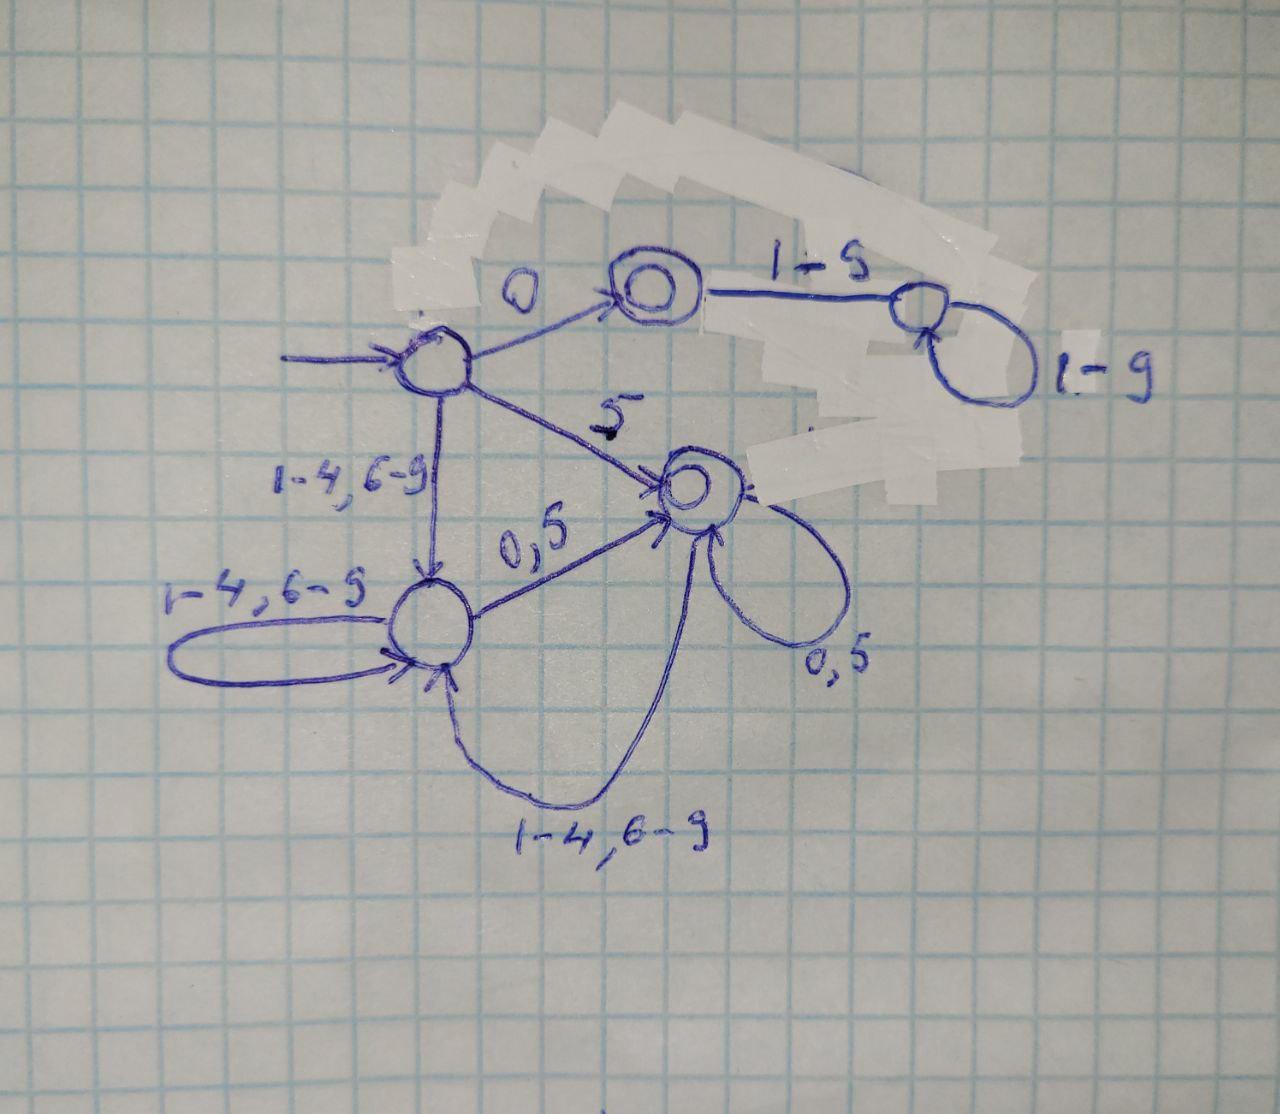 0
1-9
1-9
5
1-4, 6-9
0,5
1-4, 6-9
0,5
1-4, 6-9